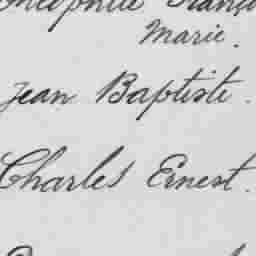 Théophile
Marie.
Jean Baptiste.
Charles Ernest.